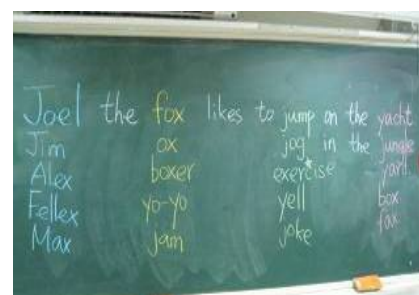 Joel the fox likes to jump on the yacht
Jim ox jog in the jungle
Alex boxer exercise yard
Fellex yo-yo yell box
Max jam joke fax